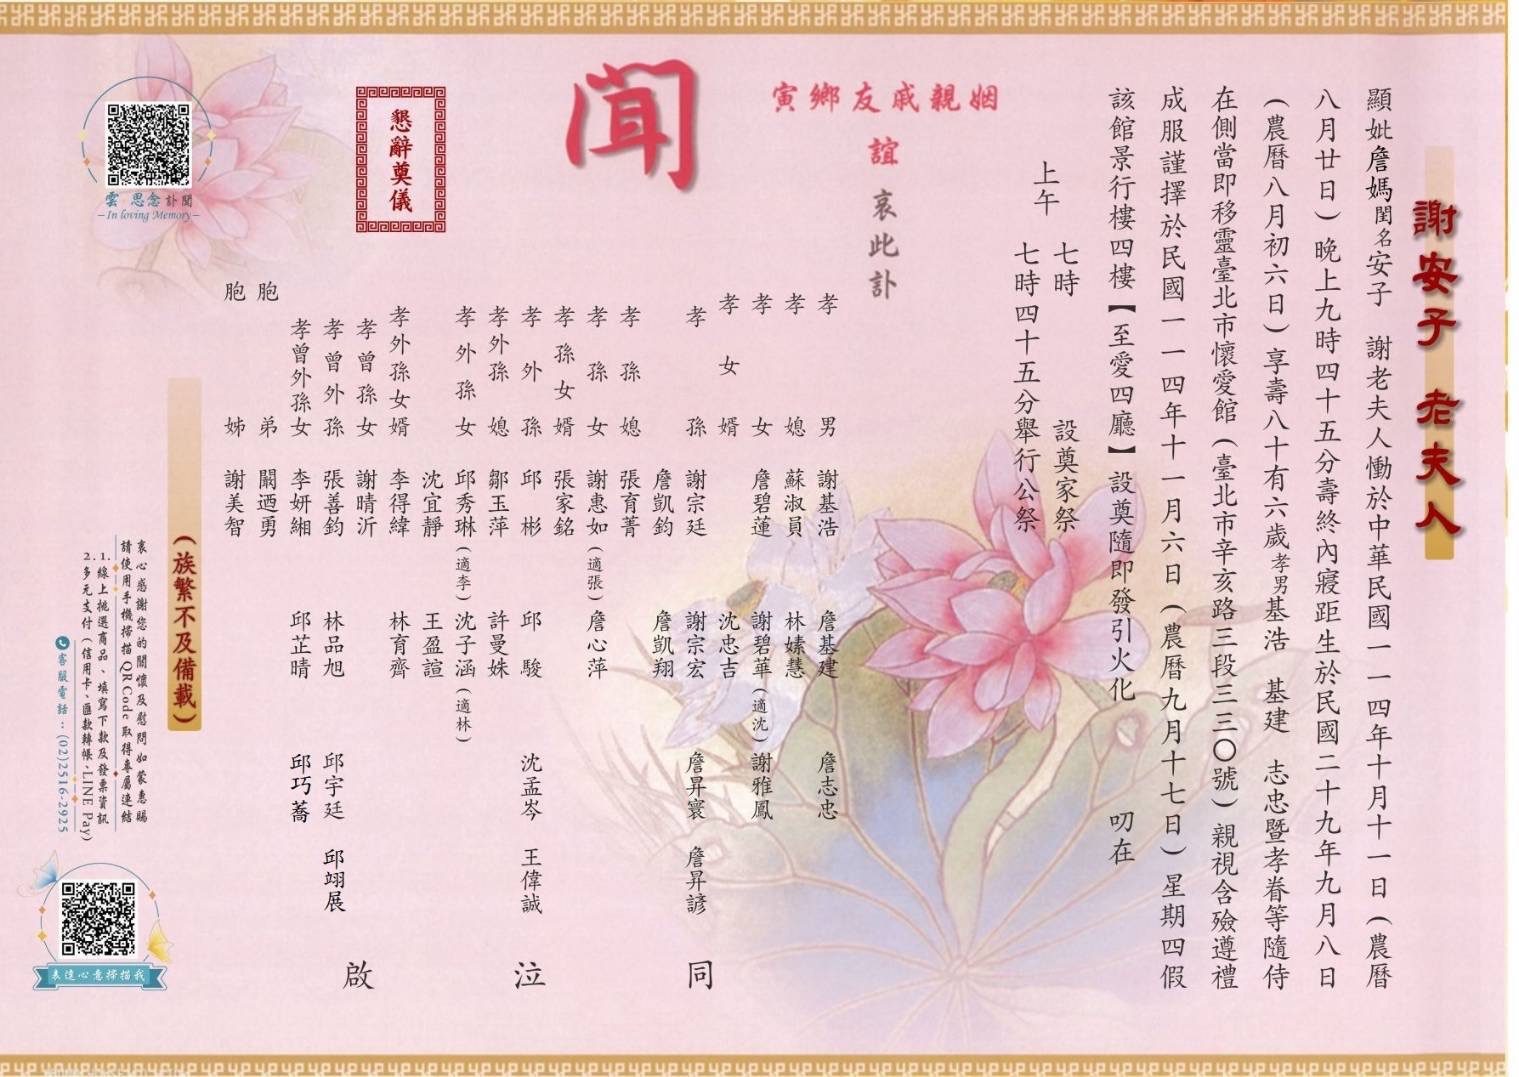 謝安子 老夫人
顯妣詹媽閨名安子 謝老夫人慟於中華民國一一四年十月十一日(農曆
八月廿日)晚上九時四十五分壽終內寢距生於民國二十九年九月八日
(農曆八月初六日)享壽八十有六歲孝男基浩 基建 志忠暨孝眷等隨侍
在側當即移靈臺北市懷愛館(臺北市辛亥路三段三三〇號)親視含殮遵禮
成服謹擇於民國一一四年十一月六日(農曆九月十七日)星期四假
該館景行樓四樓【至愛四廳】設奠隨即發引火化 叨在
上午 七時 設奠家祭
七時四十五分舉行公祭
姻親戚友鄉寅
誼 哀此訃
聞
孝男 謝基浩 詹基建 詹志忠
孝媳 蘇淑員 林嫀慧
孝女 詹碧蓮 謝碧華(適沈) 謝雅鳳
孝女婿 沈忠吉
孝孫 謝宗廷 謝宗宏 詹昇寰 詹昇諺
詹凱鈞 詹凱翔
孝孫媳 張育菁
孝孫女 謝惠如(適張) 詹心萍
孝孫女婿 張家銘
孝外孫 邱彬 邱駿 沈孟岑 王偉誠
孝外孫媳 鄒玉萍 許曼姝
孝外孫女 邱秀琳(適李) 沈子涵(適林)
沈宜靜 王盈諠
孝外孫女婿 李得緯 林育齊
孝曾孫女 謝晴沂
孝曾外孫 張善鈞 林品旭 邱宇廷 邱翊展
孝曾外孫女 李妍緗 邱芷晴 邱巧蕎
胞弟 闕迺勇
胞姊 謝美智
同
泣
啟
懇辭奠儀
(族繁不及備載)
雲 思念訃聞
In loving Memory
衷心感謝您的關懷及慰問如蒙惠賜
請使用手機掃描QR Code取得專屬連結
1.線上挑選商品、填寫下款及發票資訊
2.多元支付(信用卡、匯款轉帳、LINE Pay)
客服電話：(02)2516-2925
表達心意掃描我